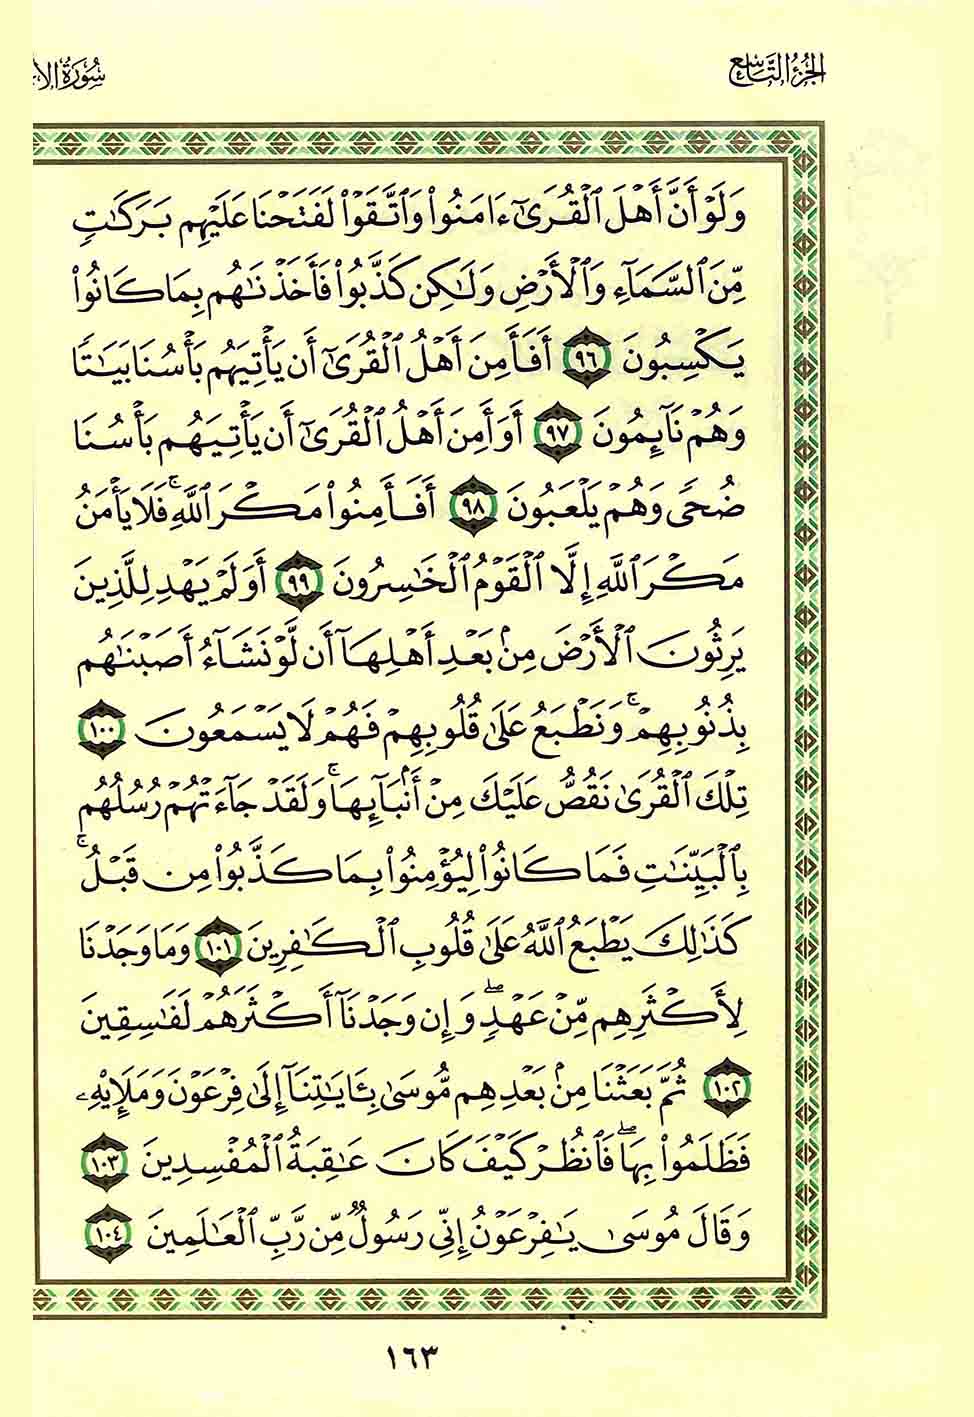 الجزء التاسع
سورة الأ
وَلَوْ أَنَّ أَهْلَ ٱلْقُرَىٰٓ ءَامَنُوا۟ وَٱتَّقَوْا۟ لَفَتَحْنَا عَلَيْهِم بَرَكَٰتٍ
مِّنَ ٱلسَّمَآءِ وَٱلْأَرْضِ وَلَٰكِن كَذَّبُوا۟ فَأَخَذْنَٰهُم بِمَا كَانُوا۟
يَكْسِبُونَ ٩٦ أَفَأَمِنَ أَهْلُ ٱلْقُرَىٰٓ أَن يَأْتِيَهُم بَأْسُنَا بَيَٰتًا
وَهُمْ نَآئِمُونَ ٩٧ أَوَأَمِنَ أَهْلُ ٱلْقُرَىٰٓ أَن يَأْتِيَهُم بَأْسُنَا
ضُحًى وَهُمْ يَلْعَبُونَ ٩٨ أَفَأَمِنُوا۟ مَكْرَ ٱللَّهِ ۚ فَلَا يَأْمَنُ
مَكْرَ ٱللَّهِ إِلَّا ٱلْقَوْمُ ٱلْخَٰسِرُونَ ٩٩ أَوَلَمْ يَهْدِ لِلَّذِينَ
يَرِثُونَ ٱلْأَرْضَ مِنۢ بَعْدِ أَهْلِهَآ أَن لَّوْ نَشَآءُ أَصَبْنَٰهُم
بِذُنُوبِهِمْ ۚ وَنَطْبَعُ عَلَىٰ قُلُوبِهِمْ فَهُمْ لَا يَسْمَعُونَ ١٠٠
تِلْكَ ٱلْقُرَىٰ نَقُصُّ عَلَيْكَ مِنْ أَنۢبَآئِهَا ۚ وَلَقَدْ جَآءَتْهُمْ رُسُلُهُم
بِٱلْبَيِّنَٰتِ فَمَا كَانُوا۟ لِيُؤْمِنُوا۟ بِمَا كَذَّبُوا۟ مِن قَبْلُ ۚ
كَذَٰلِكَ يَطْبَعُ ٱللَّهُ عَلَىٰ قُلُوبِ ٱلْكَٰفِرِينَ ١٠١ وَمَا وَجَدْنَا
لِأَكْثَرِهِم مِّنْ عَهْدٍ ۖ وَإِن وَجَدْنَآ أَكْثَرَهُمْ لَفَٰسِقِينَ
١٠٢ ثُمَّ بَعَثْنَا مِنۢ بَعْدِهِم مُّوسَىٰ بِـَٔايَٰتِنَآ إِلَىٰ فِرْعَوْنَ وَمَلَإِي۟هِۦ
فَظَلَمُوا۟ بِهَا ۖ فَٱنظُرْ كَيْفَ كَانَ عَٰقِبَةُ ٱلْمُفْسِدِينَ ١٠٣
وَقَالَ مُوسَىٰ يَٰفِرْعَوْنُ إِنِّى رَسُولٌ مِّن رَّبِّ ٱلْعَٰلَمِينَ ١٠٤
١٦٣